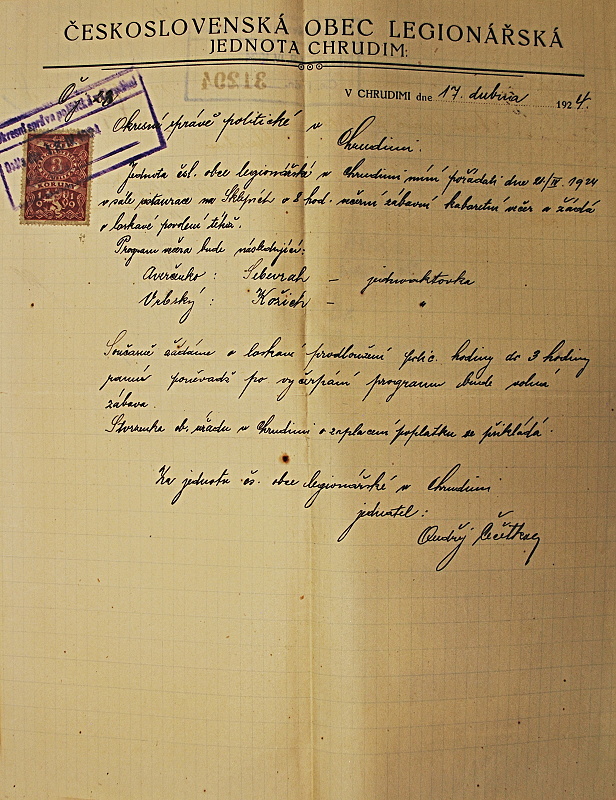 ČESKOSLOVENSKÁ OBEC LEGIONÁŘSKÁ
JEDNOTA CHRUDIM:
31204
V CHRUDIMI dne 17. dubna 1924.
Okresní správě politické v
Chrudimi.
Jednota čsl. obce legionářské v Chrudimi míní pořádati dne 21/IV. 1924
v sále restaurace na Sklípkách o 8 hod. večerní zábavní kabaretní večer a žádá
o laskavé povolení téhož.
Program večera bude následující:
Averčenko : – jednoaktovka
Vrbský : Kožich – "
Současně žádáme o laskavé prodloužení polic. hodiny do 3 hodiny
ranní poněvadž po vyčerpání programu bude volná
zábava.
Stvrzenka ob. úřadu v Chrudimi o zaplacení poplatku se přikládá.
Za jednotu čs. obce legionářské v Chrudimi
jednatel:
Ondřej